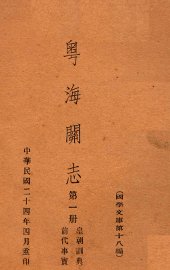 (國學文庫第十八編)
粵海關志
第一册
皇朝訓典
前代事實
中華民國二十四年四月重印